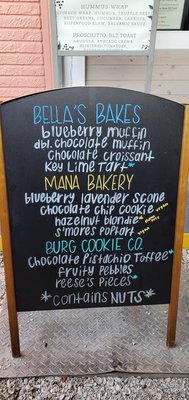 HUMMUS WRAP
SPINACH WRAP, HUMMUS, TRUFFLE DEEP
BEET GREENS, CUCUMBER, CARROTS,
SUPERFOOD SLAW, BALSAMIC SAUCE
PROSCIUTTO, BLT TOAST
ARUGULA, AVOCADO CREMA,
BLISTERED TOMATOES
BELLA'S BAKES
blueberry muffin
dbl. chocolate muffin
chocolate croissant
Key Lime Tart
MANA BAKERY
blueberry lavender scone
chocolate chip cookie vegan
hazelnut blondie
s'mores poptart vegan
BURG COOKIE CO.
Chocolate Pistachio Toffee
fruity Pebbles
reese's Pieces
*contains NUTS*